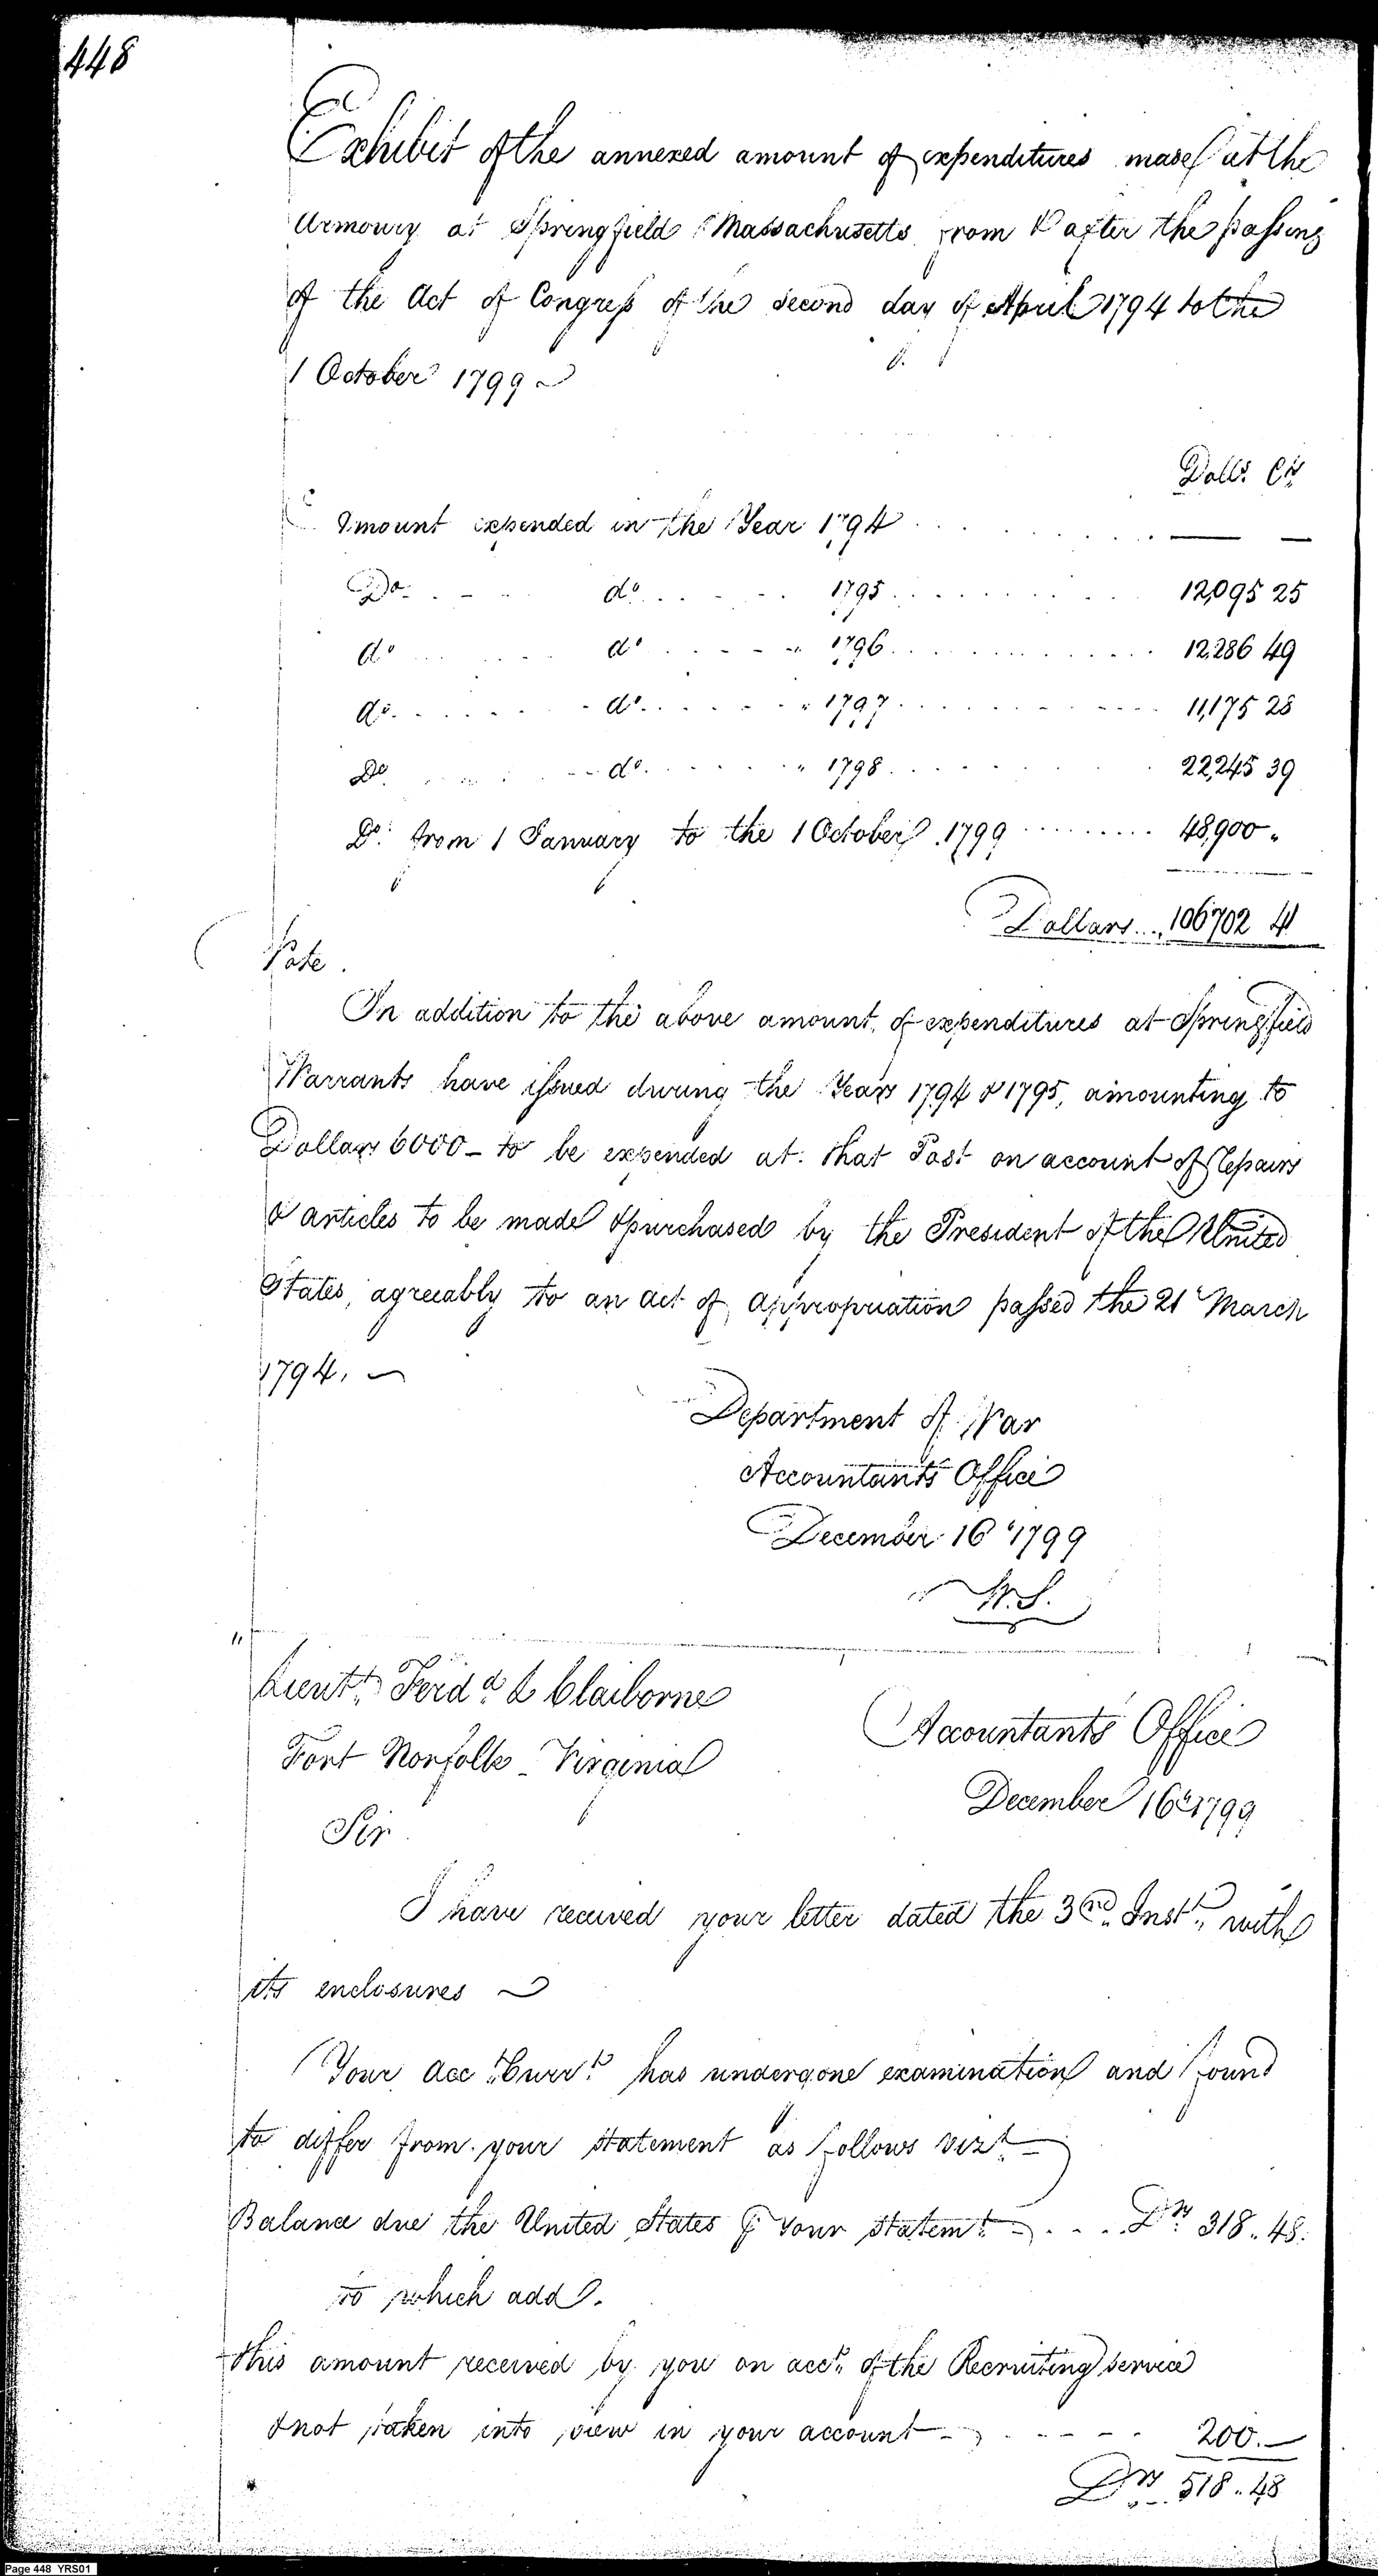 448
Exhibit of the annexed amount of expenditures made at the
Armoury at Springfield Massachusetts from & after the passing
of the Act of Congress of the second day of April 1794 to the
1 October 1799
Dolls. Cts
Amount expended in the Year 1794 . . . — —
Do. do. 1795 . . . 12,095 25
do do 1796 . . . 12,286 49
do. do. 1797 . . . 11,175 28
Do do. 1798 . . . 22,245 39
Do. from 1 January to the 1 October 1799 . . . 48,900 "
Dollars . . . 106702 41
Note.
In addition to the above amount of expenditures at Springfield
Warrants have issued during the Years 1794 & 1795, amounting to
Dollars 6000 - to be expended at that Post on account of Repairs
& articles to be made & purchased by the President of the United
States, agreeably to an act of appropriation passed the 21 March
1794.
Department of War
Accountants Office
December 16 1799
W. S.
Lieutt. Ferdd. L Claiborne
Fort Norfolk - Virginia
Accountants Office
December 16th 1799
Sir
I have received your letter dated the 3rd. Instt. with
its enclosures
Your Acct. Currt. has undergone examination and found
to differ from your statement as follows vizt.
Balance due the United States ⅌ Your Statemt. . . . Drs. 318.. 48.
to which add.
this amount received by you on acct. of the Recruiting service
& not taken into view in your account - . . . 200. —
Drs. 518.. 48
Page 448 YRS01